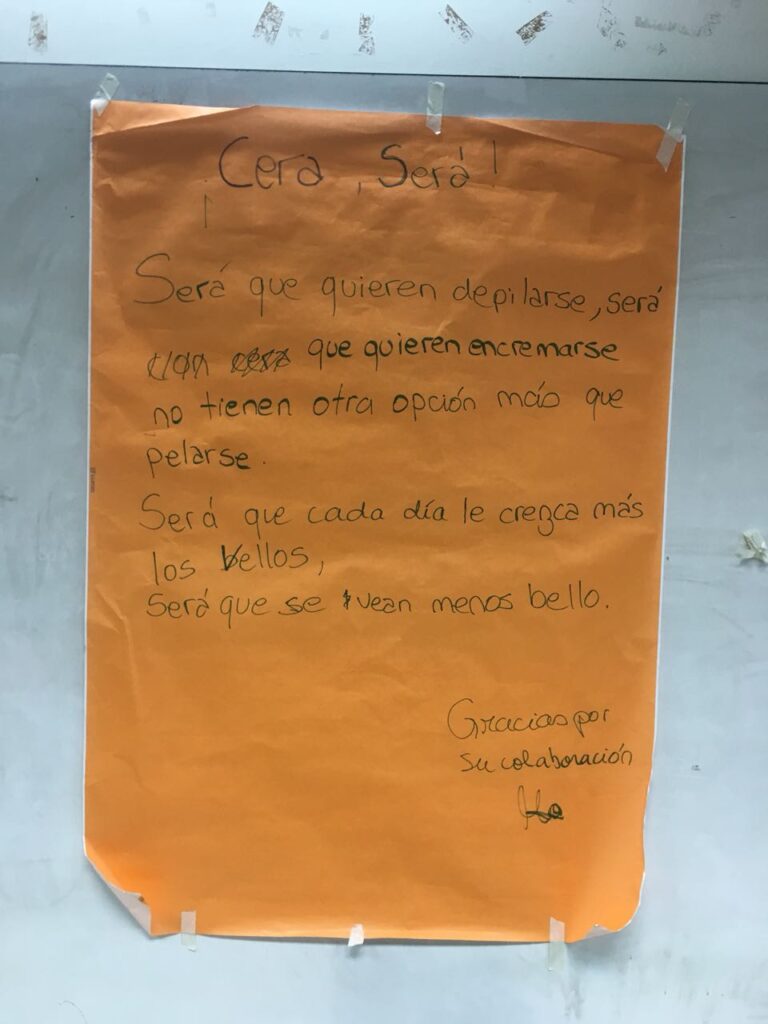 Cera, Será!
Será que quieren depilarse, será
que quieren encremarse
no tienen otra opción más que
pelarse.
Será que cada día le crezca más
los vellos,
Será que se vean menos bello.
Gracias por
su colaboración